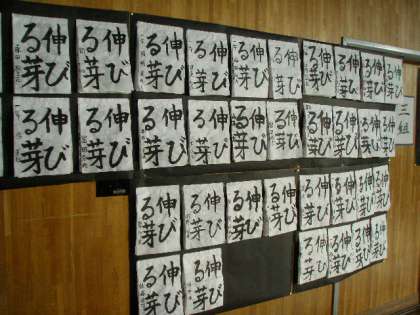 伸び
る芽
伸び
る芽
伸び
る芽
伸び
る芽
伸び
る芽
伸び
る芽
伸び
る芽
伸び
る芽
伸び
る芽
伸び
る芽
伸び
る芽
伸び
る芽
伸び
る芽
伸び
る芽
伸び
る芽
伸び
る芽
伸び
る芽
伸び
る芽
伸び
る芽
伸び
る芽
伸び
る芽
伸び
る芽
伸び
る芽
伸び
る芽
伸び
る芽
伸び
る芽
伸び
る芽
伸び
る芽
伸び
る芽
伸び
る芽
伸び
る芽
伸び
る芽
伸び
る芽
伸び
る芽
三組